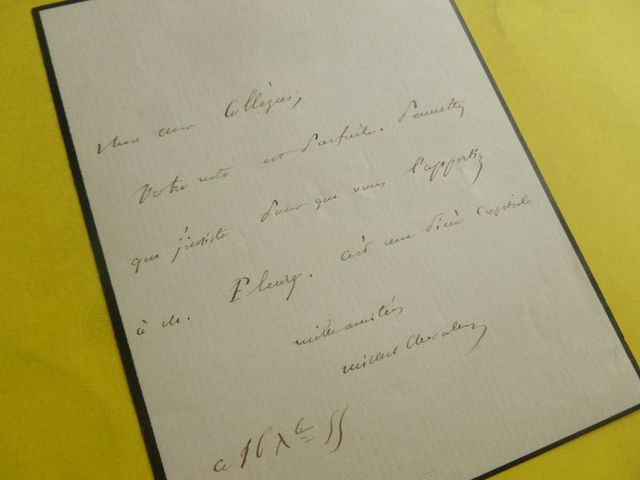 Mon cher Collègue,
Votre note est parfaite. Permettez
que j'insiste pour que vous l'apportiez
à M. Fleury. C'est une pièce capitale
mille amitiés
Michel Chevalier
ce 16 Xbre 55